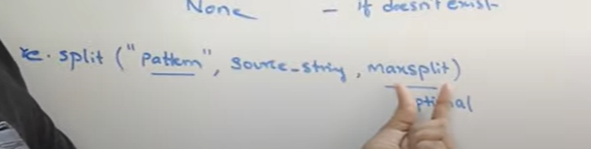 None - if doesn't exist
re.split ("Pattern", Source_string, maxsplit)